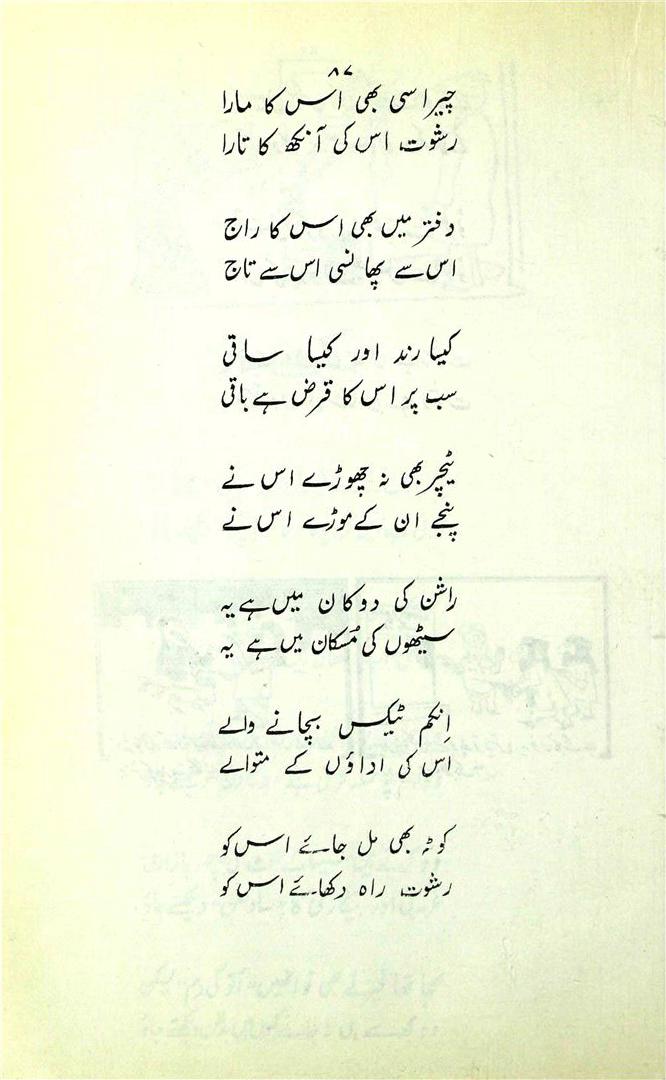 ۸۷
چپراسی بھی اس کا مارا
رشوت اس کی آنکھ کا تارا
دفتر میں بھی اس کا راج
اس سے پھانسی اس سے تاج
کیسا رند اور کیسا ساقی
سب پر اس کا قرض ہے باقی
ٹیچر بھی نہ چھوڑے اس نے
پنجے ان کے موڑے اس نے
راشن کی دوکان میں ہے یہ
سیٹھوں کی مُسکان میں ہے یہ
اِنکم ٹیکس بچانے والے
اس کی اداؤں کے متوالے
کوٹہ بھی مل جائے اس کو
رشوت راہ دکھائے اس کو